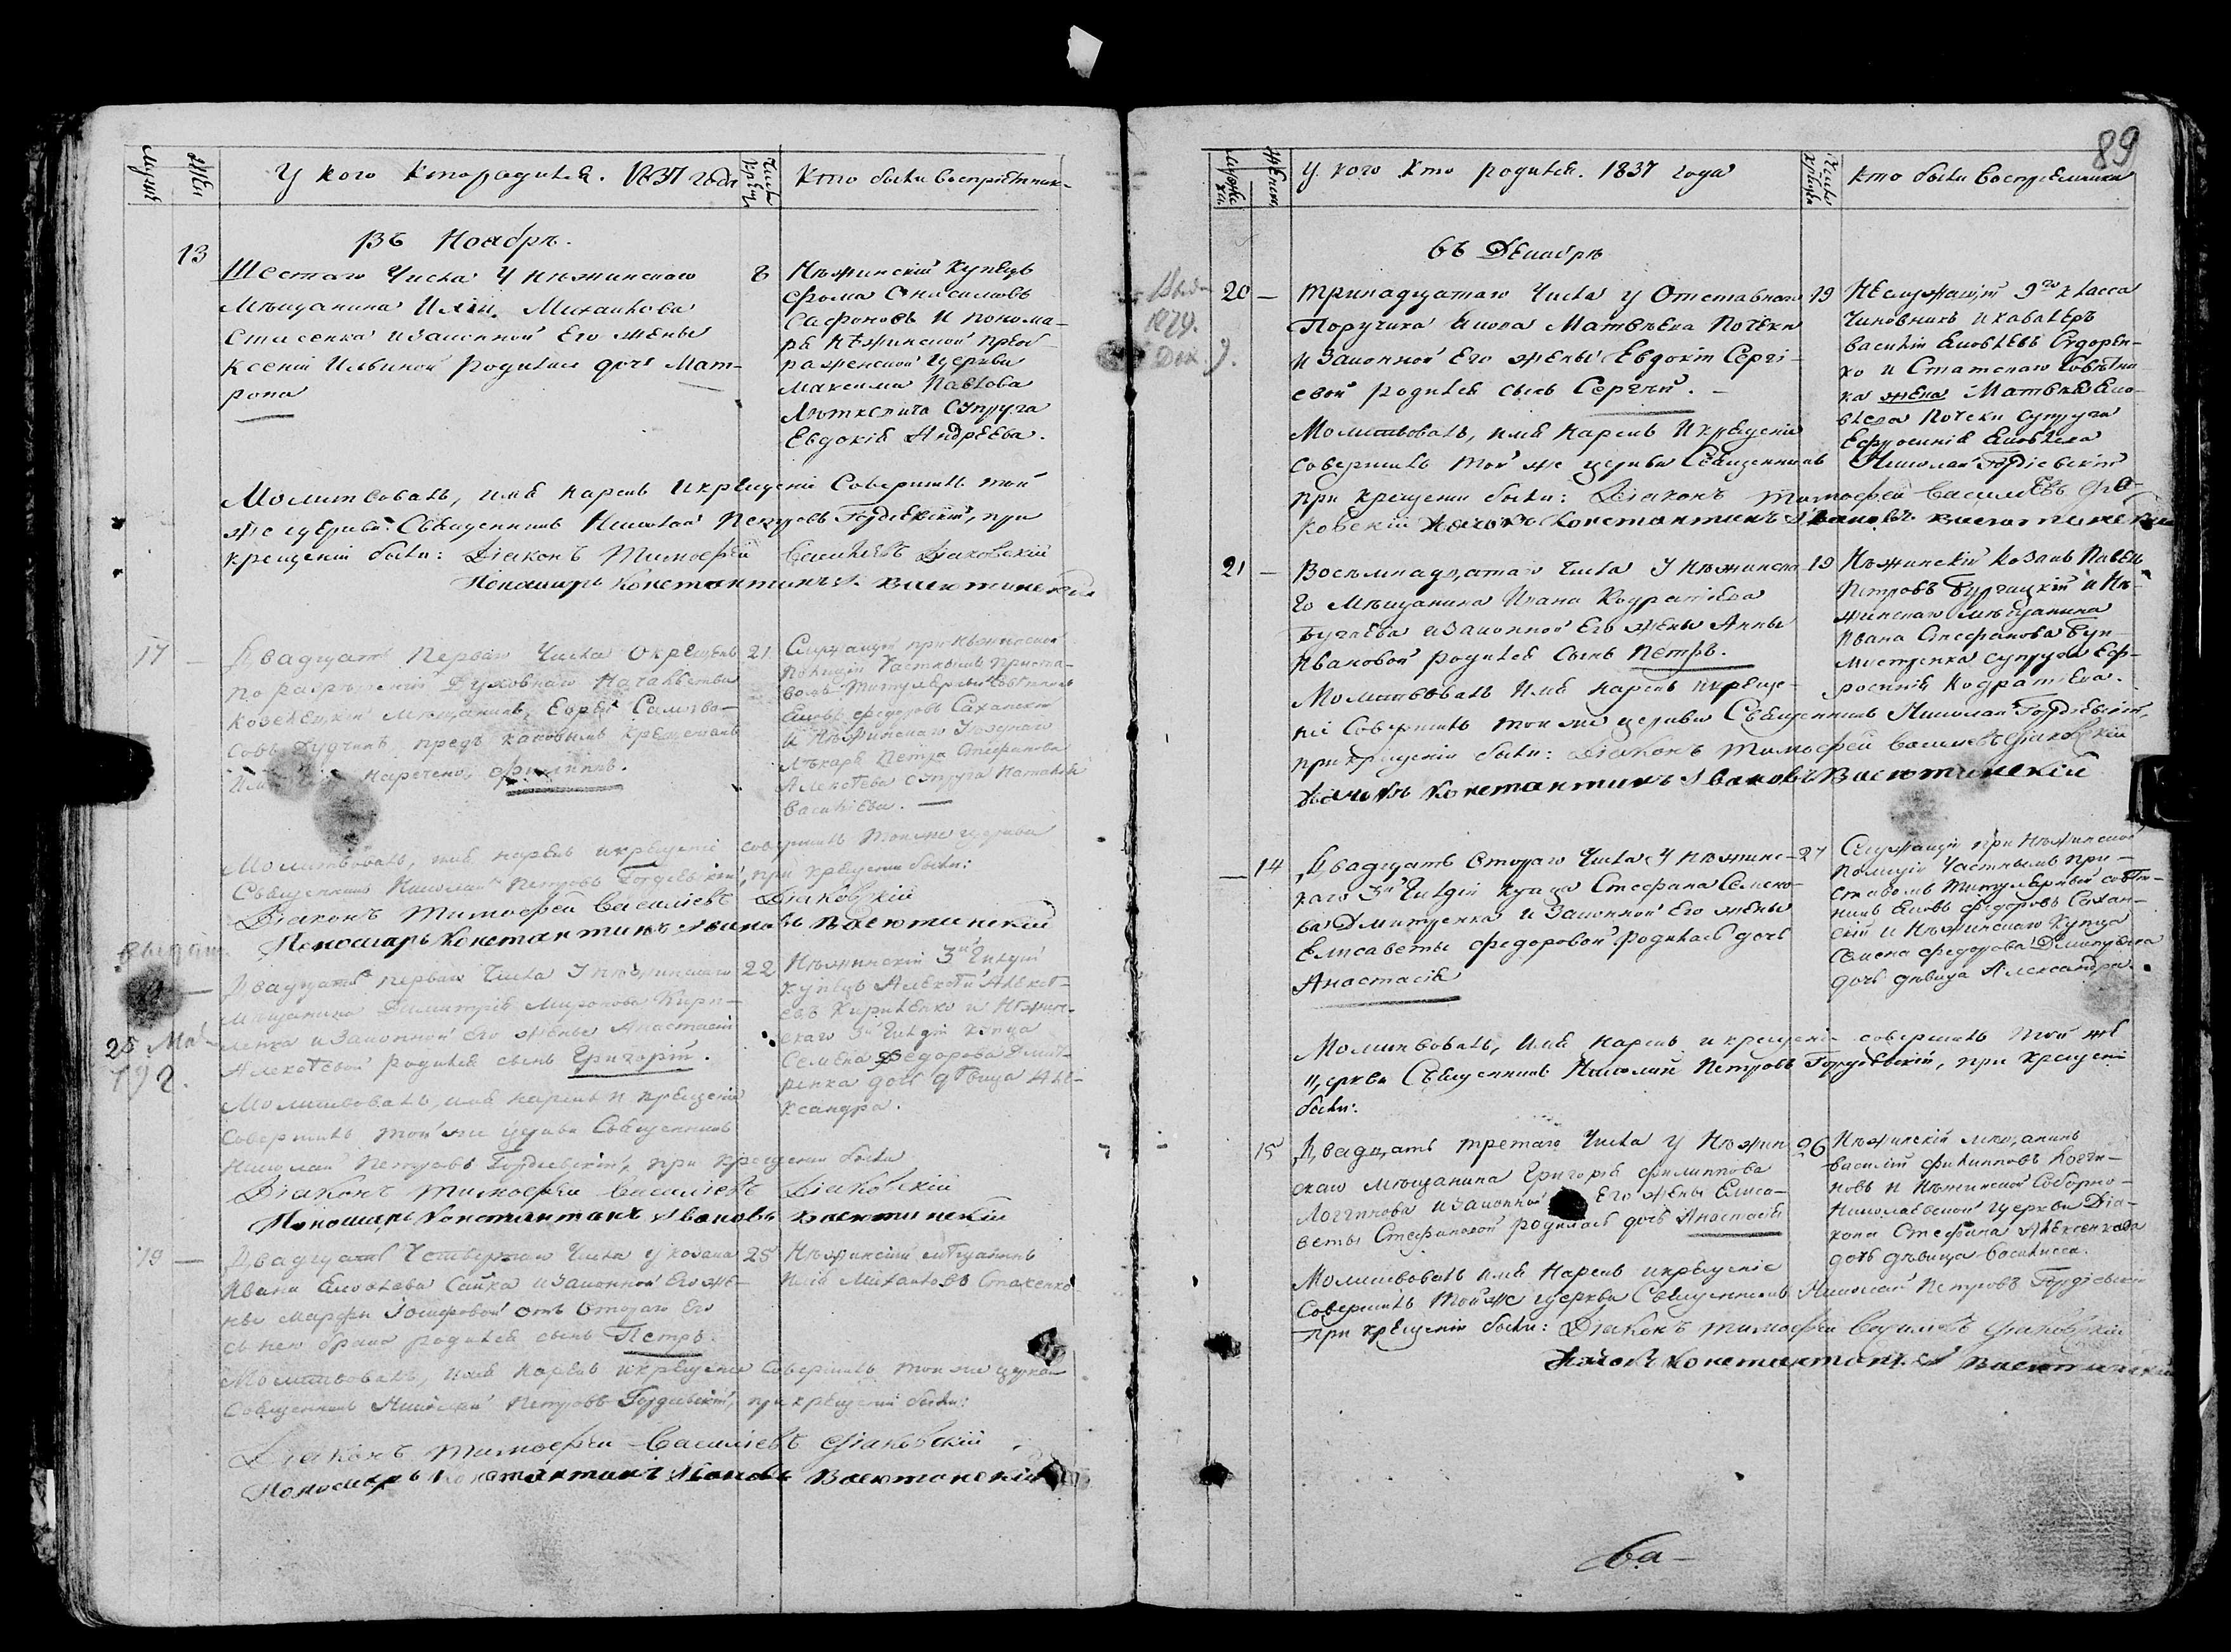 Мужес
Жен
У кого кто родился. 1837 года
Число крещ.
Кто были восприемник-
Въ Ноябрѣ.
13
Шестаго Числа У Нѣжинскаго
Мѣщанина Иліи Михаилова
Стасенка изаконной Его жены
Ксеніи Ильиной Родилась дочь Мат-
рона
8
Нѣжинскій Купецъ
Фома Онисимовъ
Сафоновъ И понома-
ря Нѣжинской Прео-
раженской Церкви
Максима Павлова
супруга
Евдокія Андреева.
Молитвовалъ, имя нарекъ Икрещеніе Совершилъ той
же церкви Священникъ Николай Петровъ Гордіевскій, при
крещеніи были: Діаконъ Тимофей Васильевъ Діаковскій
Пономарь Константинъ І. Васютинскій
17 —
Двадцать Перваго Числа Окрещенъ
по разрѣшенію Духовнаго Начальства
мѣщанинъ, Еврей
предъ
наречено Филиппъ.
21
Служащій при Нѣжинской
Полиціи Частнымъ приста-
вомъ Титулярный Совѣтникъ
Яковъ Федоровъ Саханскій
и Нѣжинскаго Уѣзднаго
Лѣкаря Петра Стефанова
супруга Наталія
Васильева. —
Молитвовалъ, имя нарекъ икрещеніе совершилъ той же церкви
Священникъ Николай Петровъ Гордіевскій, при крещеніи были:
Діаконъ Тимофей Васильевъ Діаковскій
Пономарь Константинъ Ивановъ Васютинскій
25 Ма
Двадцать перваго Числа У Нѣжинскаго
Мѣщанина Димитрія Миронова Кири-
ленка изаконной его жены Анастасіи
Алексѣевой родился сынъ Григорій.
22
Нѣжинскій 3й Гильдіи
купецъ Алексѣй Алексѣ-
евъ Кириленко и Нѣжин-
скаго 3й Гильдіи купца
Семена Федорова Дмит-
ренка дочь дѣвица Але-
ксандра.
Молитвовалъ, имя нарекъ и крещеніе
Совершилъ той же церкви Священникъ
Николай Петровъ Гордіевскій, при крещеніи были
Діаконъ Тимофей Васильевъ Діаковскій
Пономарь Константинъ Ивановъ Васютинскій
19 —
Двадцать Четвертаго Числа у козака
Ивана Яковлева Сайка изаконной Его же-
ны Марфы Іосифовой отъ Втораго Его
съ нею брака родился сынъ Петръ.
25
Нѣжинскій мѣщанинъ
Илія Михаиловъ Стасенко
Молитвовалъ, имя нарекъ икрещеніе Совершилъ той же церкви
Священникъ Николай Петровъ Гордіевскій, при крещеніи были:
Діаконъ Тимофей Васильевъ Діаковскій
Пономарь Константинъ Ивановъ Васютинскій
89
Мужес
Женск.
У кого кто родился. 1837 года
Число крещен
кто были Восприемники
Въ Декабрѣ
1879.
Дек. 7.
20 —
Тринадцатаго Числа у Отставнаго
Поручика Якова Матвѣева Почеки
И Законной Его жены Евдокіи Сергі-
евой родился сынъ Сергѣй. —
19
Неслужащій 9го класса
Чиновникъ и кавалеръ
Василій Яковлевъ Сидорен-
ко и Статскаго Совѣтни-
ка жена Матвѣя Яко-
влева Почеки супруга
Ефросинія Яковлева
Молитвовалъ, имя нарекъ Икрещеніе
совершилъ той же церкви Священникъ Николай Гордіевскій
при крещеніи были: Діаконъ Тимофей Васильевъ Діа-
ковскій Дьячокъ Константинъ Ивановъ Васютинскій
21 —
Восемнадцатаго Числа У Нѣжинска-
го Мѣщанина Ивана Кодратіева
Бугаева изаконной Его жены Анны
Ивановой родился Сынъ Петръ.
19
Нѣжинскій Козакъ Павелъ
Петровъ и Нѣ-
жинскаго мѣщанина
Ивана Стефанова
супруга Еф-
росинія Кодратіева.
Молитвовалъ Имя нарекъ икреще-
ніе Совершилъ той же церкви Священникъ Николай Гордіевскій,
при крещеніи были: Діаконъ Тимофей Васильевъ Діаковскій
Дьячокъ Константинъ Ивановъ Васютинскій
— 14
Двадцать Втораго Числа У Нѣжинс-
каго 3й Гильдіи Купца Стефана Семено-
ва Дмитренка и Законной Его жены
Елисаветы Федоровой родилась дочь
Анастасія
27
Служащій при Нѣжинской
Полиціи Частнымъ при-
ставомъ Титулярный совѣт-
никъ Яковъ Федоровъ Сахан-
скій и Нѣжинскаго Купца
Семена Федорова Дмитренка
дочь дѣвица Александра.
Молитвовалъ, Имя нарекъ икрещеніе совершилъ той же
церкви Священникъ Николай Петровъ Гордіевскій, при крещеніи
были:
15
Двадцать третяго Числа у Нѣжин
скаго мѣщанина Григорія Филиппова
Логгинова изаконной Его жены Елиса-
веты Стефановой родилась дочь Анастасія
26
Нѣжинскій мѣщанинъ
Василій Филипповъ Логги-
новъ и Нѣжинской Соборно-
Николаевской церкви Діа-
кона Стефана
дочь дѣвица Василисса.
Молитвовалъ имя Нарекъ икрещеніе
Совершилъ Той же церкви Священникъ Николай Петровъ Гордіевскій
при крещеніи были: Діаконъ Тимофей Васильевъ Діаковскій
Дьячокъ Константинъ І Васютинскій